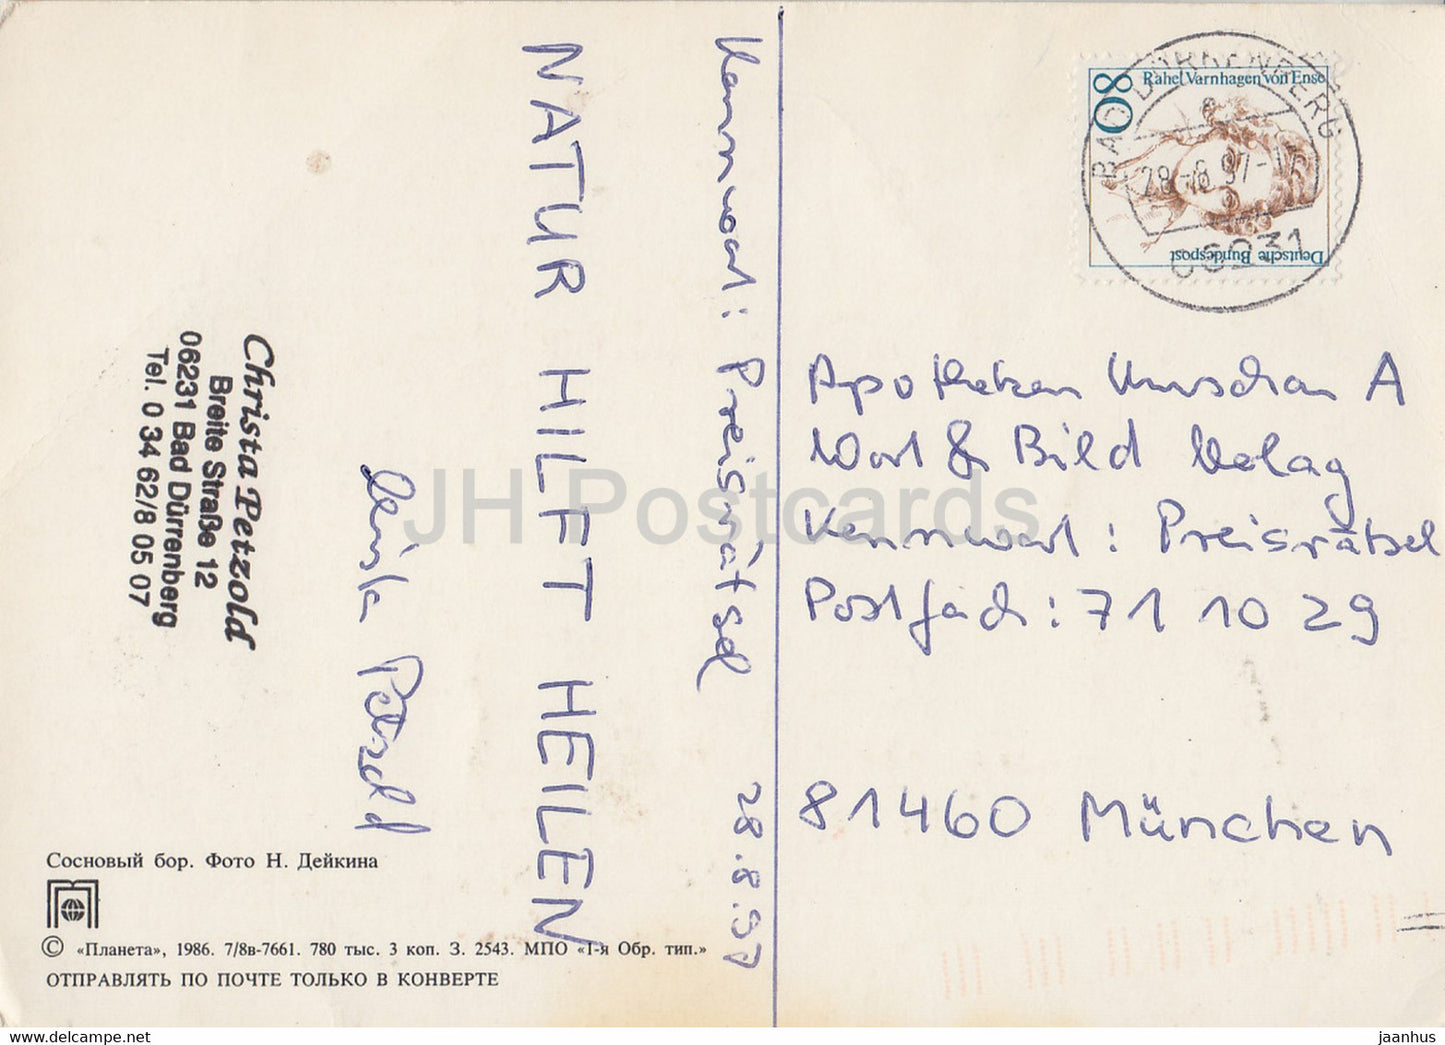 Kennwort: Preisrätsel 28.8.97
NATUR HILFT HEILEN
Petzold
Christa Petzold
Breite Straße 12
06231 Bad Dürrenberg
Tel. 0 34 62/8 05 07
Сосновый бор. Фото Н. Дейкина
© «Планета», 1986. 7/8в-7661. 780 тыс. 3 коп. З. 2543. МПО «1-я Обр. тип.»
ОТПРАВЛЯТЬ ПО ПОЧТЕ ТОЛЬКО В КОНВЕРТЕ
80
Rahel Varnhagen von Ense
Deutsche Bundespost
BAD DÜRRENBERG
28.-8.97-
06231
Apotheken Umschau A
Wort & Bild Verlag
Kennwort: Preisrätsel
Postfach: 71 10 29
81460 München
JH Postcards
www.delcampe.net
jaanhus